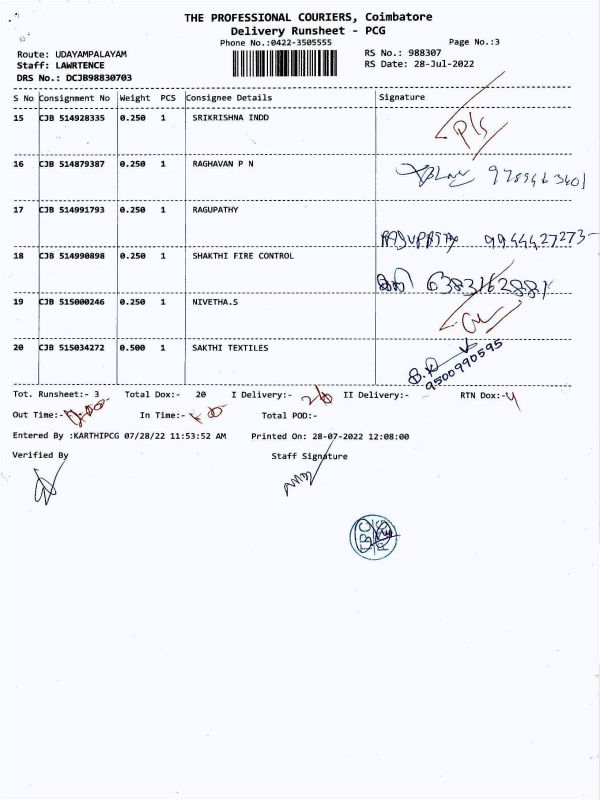 THE PROFESSIONAL COURIERS, Coimbatore
Delivery Runsheet - PCG
Phone No.:0422-3505555 Page No.:3
Route: UDAYAMPALAYAM RS No.: 988307
Staff: LAWRTENCE RS Date: 28-Jul-2022
DRS No.: DCJB98830703
S No Consignment No Weight PCS Consignee Details Signature
15 CJB 514928335 0.250 1 SRIKRISHNA INDD P/S
16 CJB 514879387 0.250 1 RAGHAVAN P N
17 CJB 514991793 0.250 1 RAGUPATHY 9944427273
18 CJB 514990898 0.250 1 SHAKTHI FIRE CONTROL
19 CJB 515000246 0.250 1 NIVETHA.S
20 CJB 515034272 0.500 1 SAKTHI TEXTILES 9500990595
Tot. Runsheet:- 3 Total Dox:- 20 I Delivery:- II Delivery:- RTN Dox:- 4
Out Time:- In Time:- Total POD:-
Entered By :KARTHIPCG 07/28/22 11:53:52 AM Printed On: 28-07-2022 12:08:00
Verified By Staff Signature